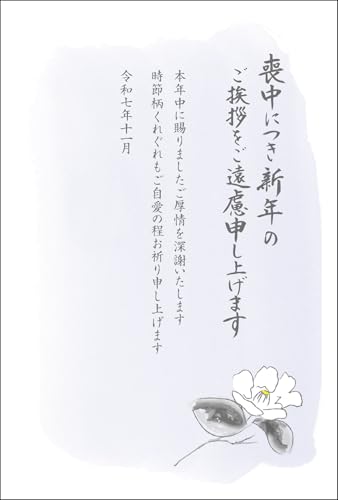 喪中につき新年の
ご挨拶をご遠慮申し上げます
本年中に賜りましたご厚情を深謝いたします
時節柄くれぐれもご自愛の程お祈り申し上げます
令和七年十一月